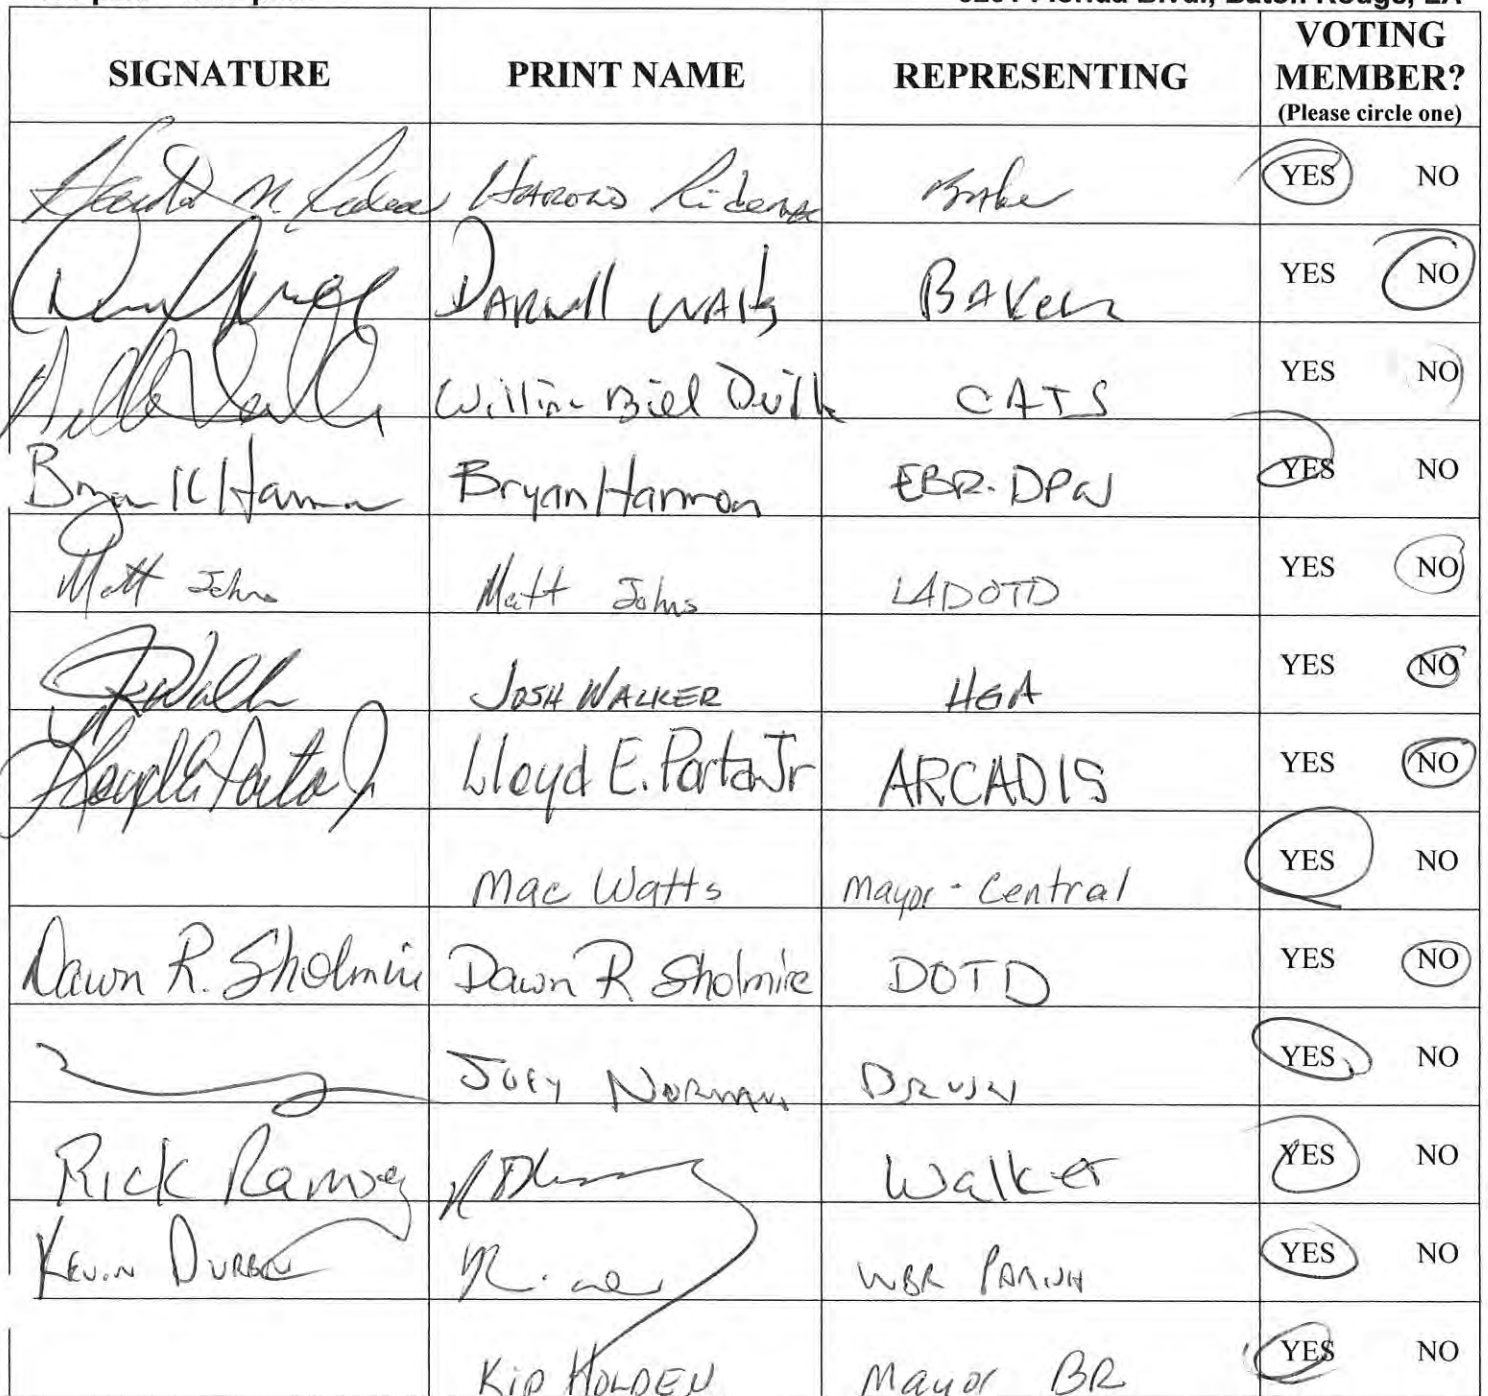 Florida Blvd., Baton Rouge, LA
SIGNATURE PRINT NAME REPRESENTING VOTING MEMBER?
(Please circle one)
Harold Rideau Baker YES NO
Darnell Waits BAKER YES NO
Bill CATS YES NO
Bryan K Harmon Bryan Harmon EBR-DPW YES NO
Matt Johns Matt Johns LADOTD YES NO
JOSH WALKER HGA YES NO
Lloyd E. Porta Jr ARCADIS YES NO
Mac Watts Mayor - Central YES NO
Dawn R. Sholmire Dawn R. Sholmire DOTD YES NO
JOEY NORMAN YES NO
Rick Ramsey Walker YES NO
KEVIN DURBIN WBR PARISH YES NO
Kip HOLDEN Mayor BR YES NO